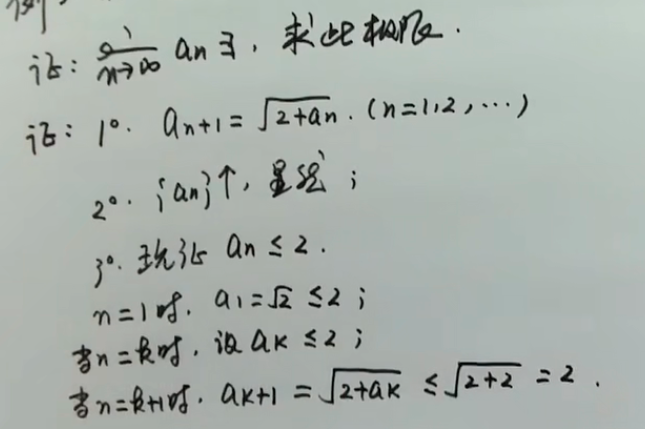 例
证: lim n→∞ an ∃. 求此极限.
证: 1°. an+1 = √2+an. (n=1,2,…)
2°. {an}↑, 显然;
3°. 现证 an ≤ 2.
n=1时. a1=√2 ≤ 2;
当n=k时. 设 ak ≤ 2;
当n=k+1时. ak+1 = √2+ak ≤ √2+2 = 2.